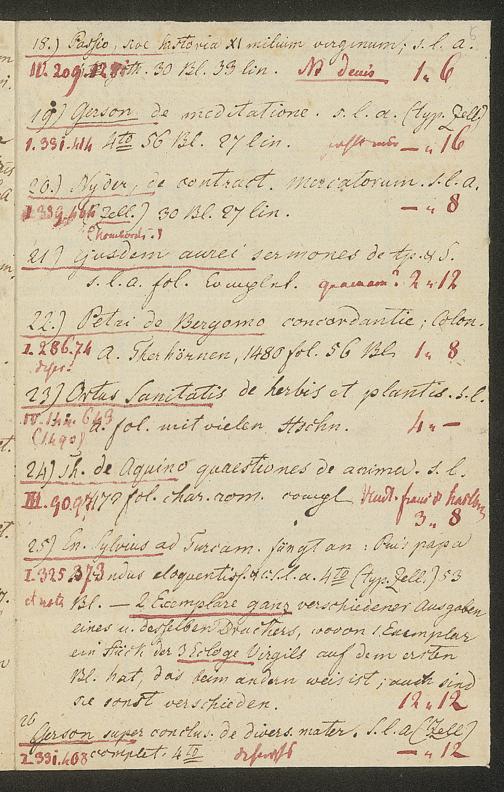 18.) Passio, sive historia XI milium virginum; s. l. a.
IV. 209. 30 Bl. 33 lin. No denis 1 „ 6
19.) Gerson de meditatione. s. l. a. (typ. Zell)
1.331.414 4to 56 Bl. 27 lin. — „ 16
20.) Nyder, de contract. mercatorum. s. l. a.
(Zell.) 30 Bl. 27 lin. — „ 8
21) Ejusdem aurei sermones de tp. & S.
s. l. a. fol. Complet. quaenam? 2 „ 12
22.) Petri de Bergomo concordantie; Colon.
I. 286.74 A. Therhörnen, 1480 fol. 56 Bl. 1 „ 8
23) Ortus Sanitatis de herbis et plantis. s. l.
(1490) a. fol. mit vielen Hschn. 4 „ —
24) Th. de Aquino quaestiones de anima. s. l.
III. 90.97 fol. char. rom. compl.
3 „ 8
25) En. Sylvius ad Turcam. fängt an: Pius papa
I. 325.373 s. l. a. 4to (typ. Zell.) 53
Bl. — 2 Exemplare ganz verschiedener Ausgaben
eines u. desselben Druckers, wovon 1 Exemplar
ein Stück der 3 Ecloge Virgils auf dem ersten
Bl. hat, das beim andern weis ist; auch sind
sie sonst verschieden. 12 „ 12
26
Gerson super conclus. de divers. mater. s. l. a (Zell)
I. 331.408 complet. 4to — „ 12